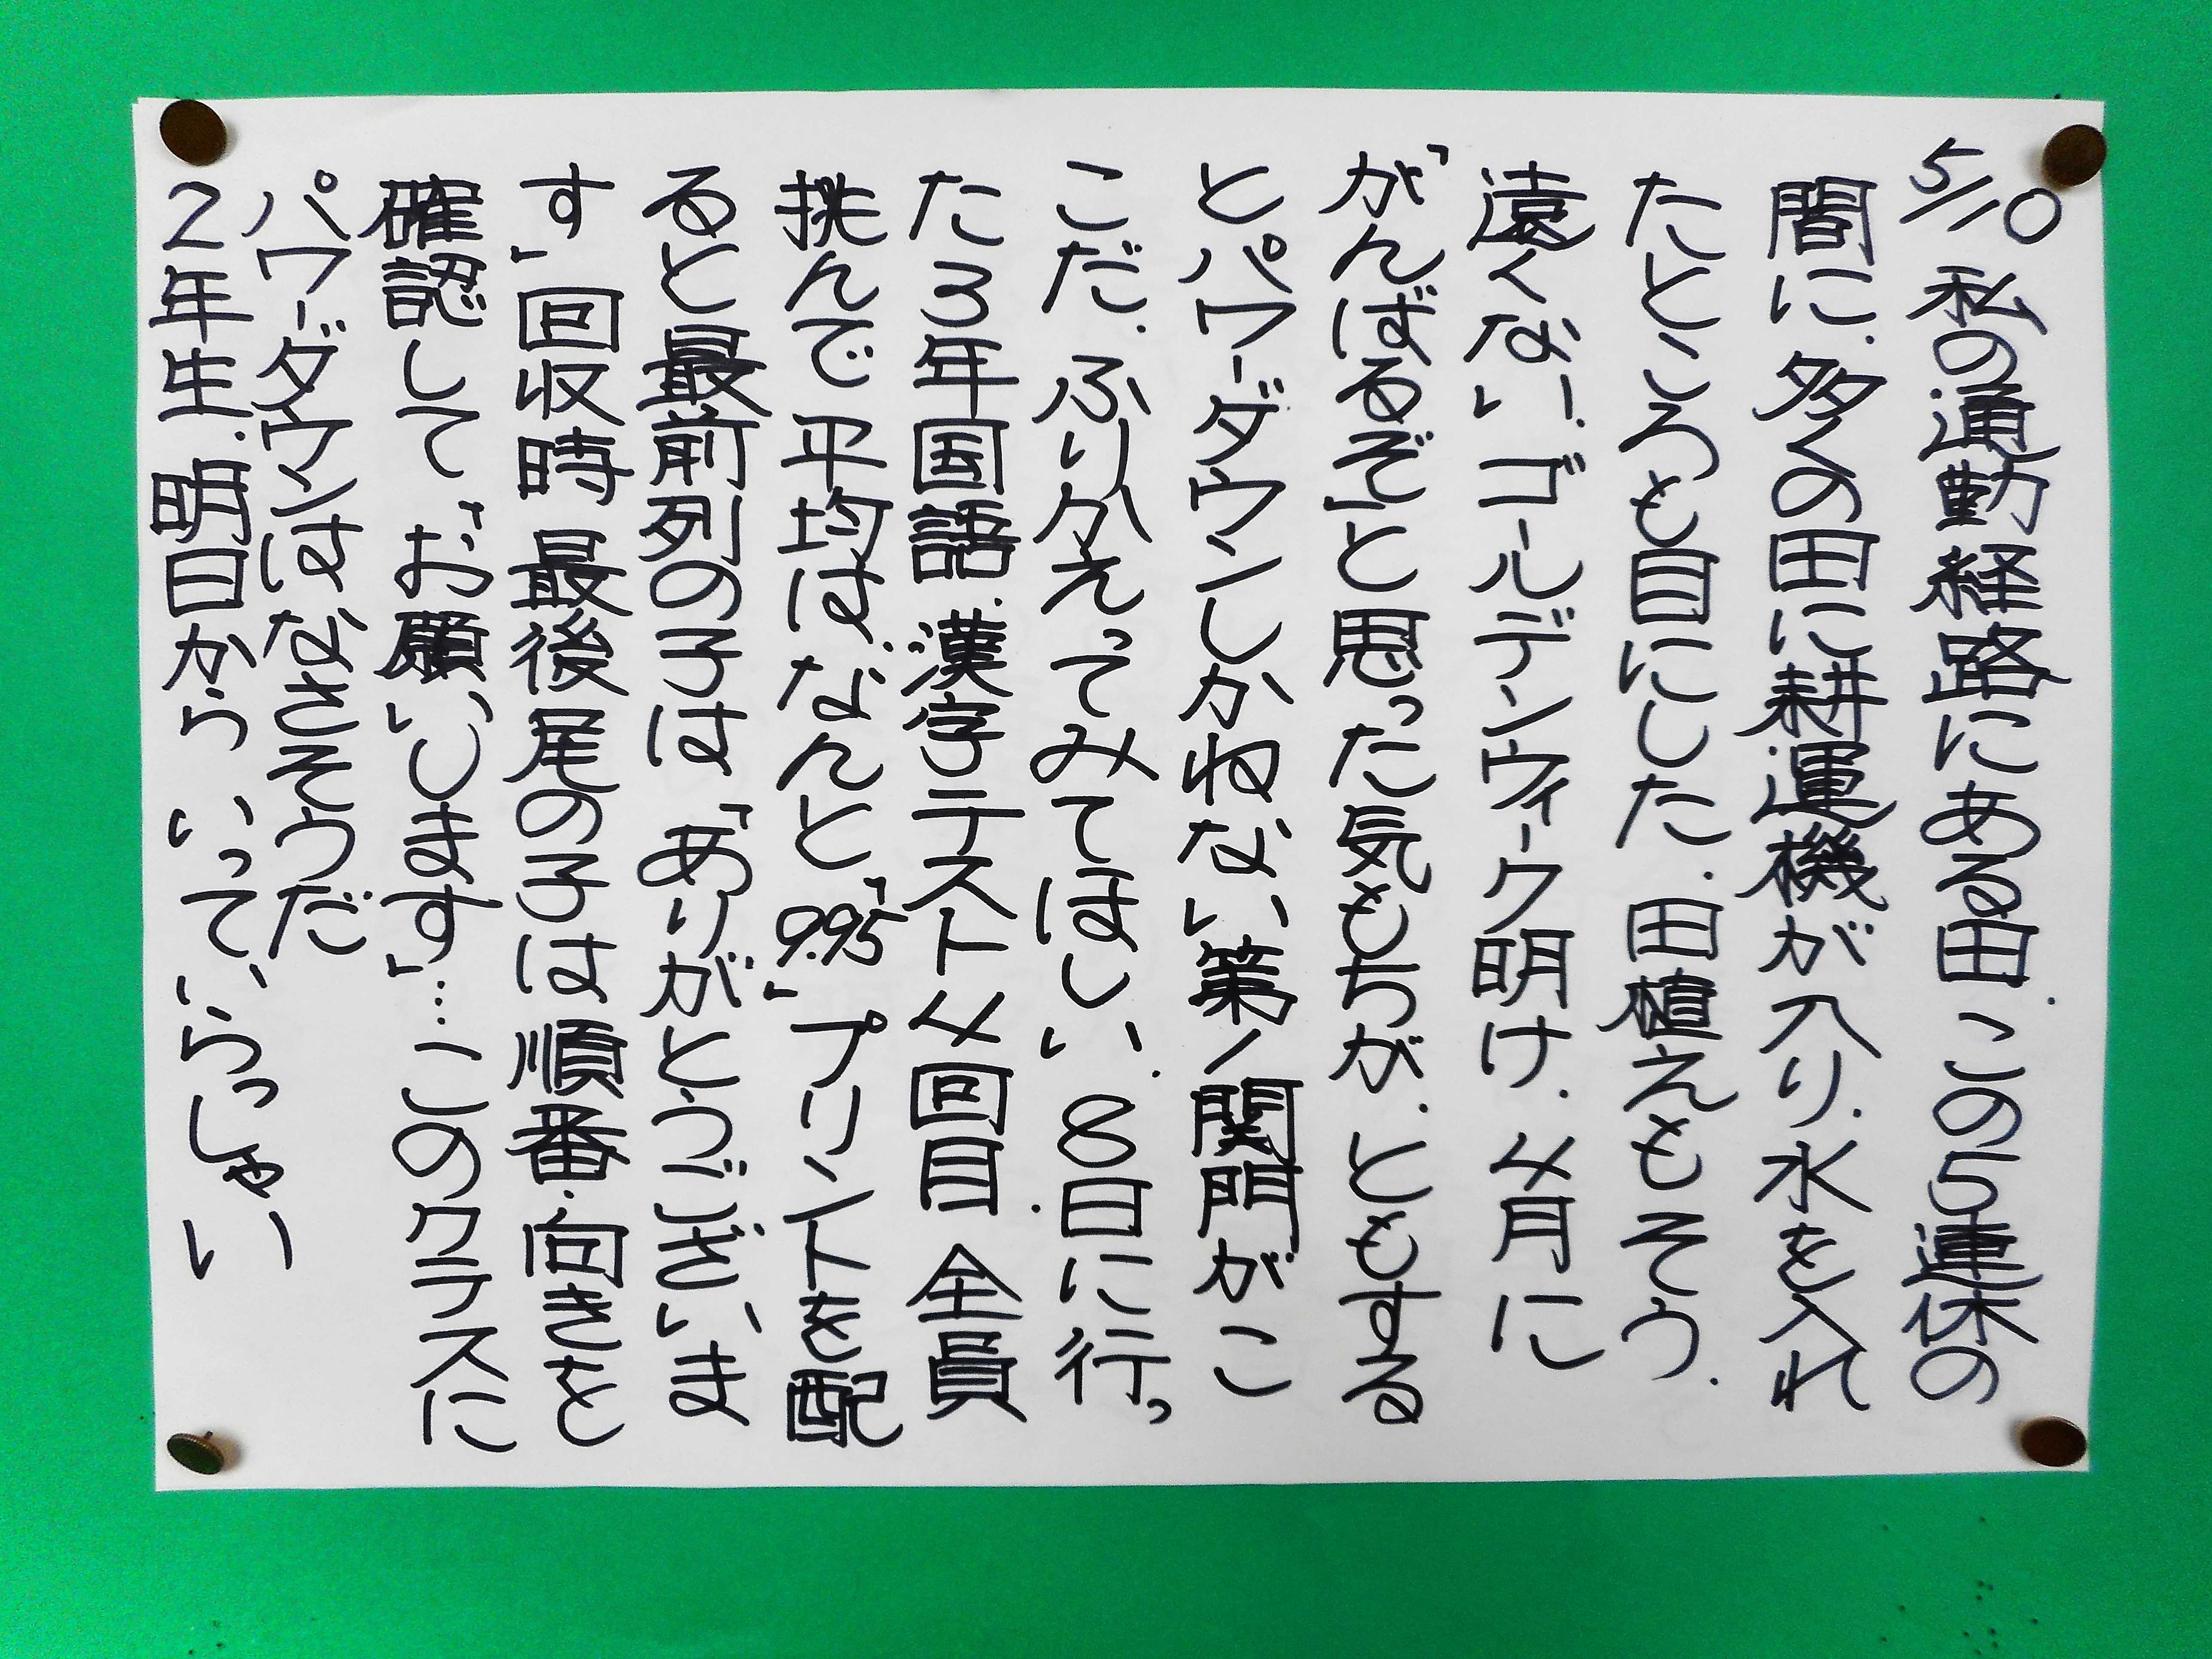 5/10 私の通勤経路にある田.この5連休の
間に.多くの田に耕運機が入り.水を入れ
たところも目にした.田植えもそう.
遠くない.ゴールデンウィーク明け.4月に
「がんばるぞ」と思った気もちが.ともする
とパワーダウンしかねない第1関門がこ
こだ.ふりかえってみてほしい.8日に行っ
た3年国語.漢字テスト4回目.全員
挑んで平均は.なんと「9.95」プリントを配
ると最前列の子は「ありがとうございま
す」回収時最後尾の子は順番.向きを
確認して「お願いします」…このクラスに
パワーダウンはなさそうだ
2年生.明日からいっていらっしゃーい